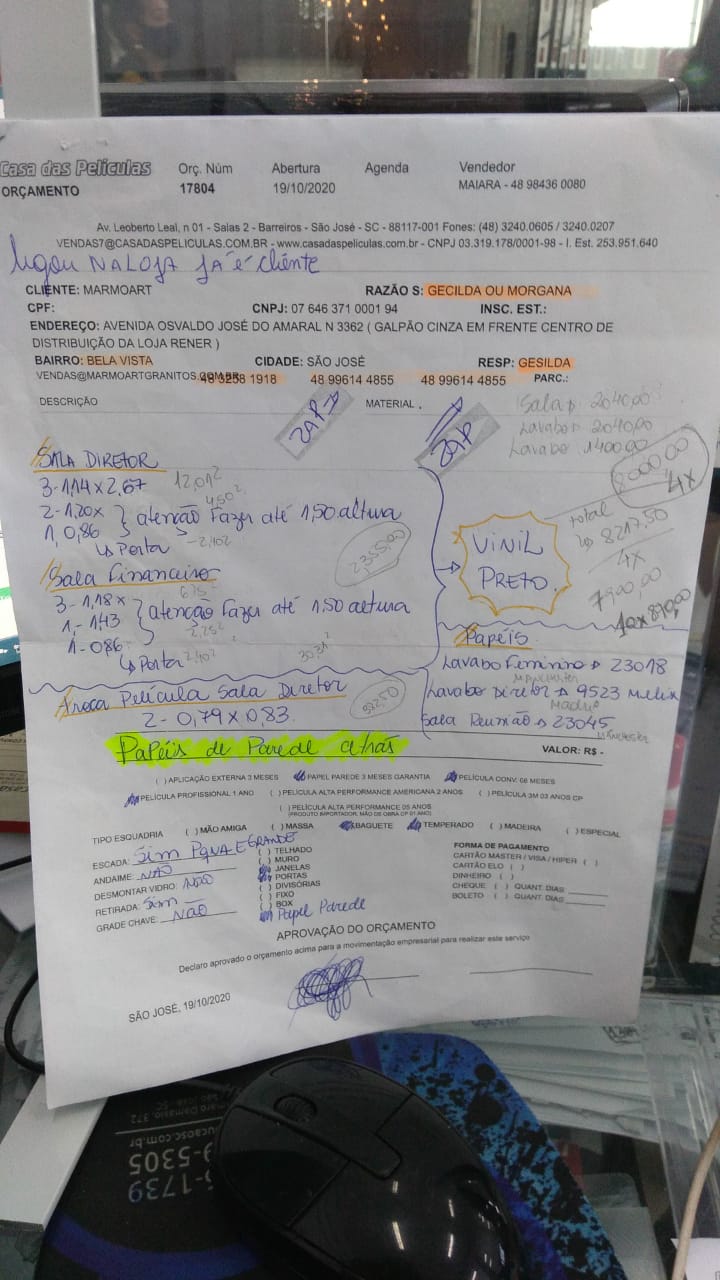 Casa das Películas
ORÇAMENTO
Orç. Núm
17804
Abertura
19/10/2020
Agenda
Vendedor
MAIARA - 48 98436 0080
Av. Leoberto Leal, n 01 - Salas 2 - Barreiros - São José - SC - 88117-001 Fones: (48) 3240.0605 / 3240.0207
VENDAS7@CASADASPELICULAS.COM.BR - www.casadaspeliculas.com.br - CNPJ 03.319.178/0001-98 - I. Est. 253.951.640
ligou NA LOJA JÁ é cliente
CLIENTE: MARMOART RAZÃO S: GECILDA OU MORGANA
CPF: CNPJ: 07 646 371 0001 94 INSC. EST.:
ENDEREÇO: AVENIDA OSVALDO JOSÉ DO AMARAL N 3362 ( GALPÃO CINZA EM FRENTE CENTRO DE
DISTRIBUIÇÃO DA LOJA RENER )
BAIRRO: BELA VISTA CIDADE: SÃO JOSÉ RESP: GESILDA
VENDAS@MARMOARTGRANITOS.COM.BR 48 3258 1918 48 99614 4855 48 99614 4855 PARC.:
DESCRIÇÃO MATERIAL
ZAP
ZAP
Sala 2040,00
Lavabo 2040,00
Lavabo 1400,00
8000,00
4x
total
8217,50
4x
7900,00
10x 870,00
SALA DIRETOR
3-1,14x2,67 12,01²
4,50²
2-1,20x } atencão Fazer até 1,50 altura
1, 0,86
↳ Porta -2,40²
2355,00
Sala Financeiro
6,75²
3-1,18x } atencão Fazer até 1,50 altura
1,-1,43
2,25²
1-0,86
↳ Porta 2,40²
30,31²
VINIL
PRETO.
Papéis
Lavabo Feminino → 23018
Manchester
Lavabo Diretor → 9523
Madri
Sala Reunião → 23045
Manchester
Película Sala Diretor
2-0,79x0,83
592,50
Papéis de Parede atrás
VALOR: R$ -
( ) APLICAÇÃO EXTERNA 3 MESES PAPEL PAREDE 3 MESES GARANTIA PELÍCULA CONV. 66 MESES
PELÍCULA PROFISSIONAL 1 ANO ( ) PELÍCULA ALTA PERFORMANCE AMERICANA 2 ANOS ( ) PELÍCULA 3M 03 ANOS CP
( ) PELÍCULA ALTA PERFORMANCE 05 ANOS
(PRODUTO IMPORTADOR, MÃO DE OBRA CP 01 ANO)
TIPO ESQUADRIA ( ) MÃO AMIGA ( ) MASSA BAGUETE TEMPERADO ( ) MADEIRA ( ) ESPECIAL
ESCADA: Sim PQNA E GRANDE
ANDAIME: NÃO
DESMONTAR VIDRO: NÃO
RETIRADA: Sim
GRADE CHAVE: Não
( ) TELHADO
( ) MURO
JANELAS
PORTAS
( ) DIVISÓRIAS
( ) FIXO
( ) BOX
Papel Parede
FORMA DE PAGAMENTO
CARTÃO MASTER / VISA / HIPER ( )
CARTÃO ELO ( )
DINHEIRO ( )
CHEQUE ( ) QUANT. DIAS
BOLETO ( ) QUANT. DIAS
APROVAÇÃO DO ORÇAMENTO
Declaro aprovado o orçamento acima para a movimentação empresarial para realizar este serviço
SÃO JOSÉ, 19/10/2020
ucaosc.com.br
9-5305
-1739